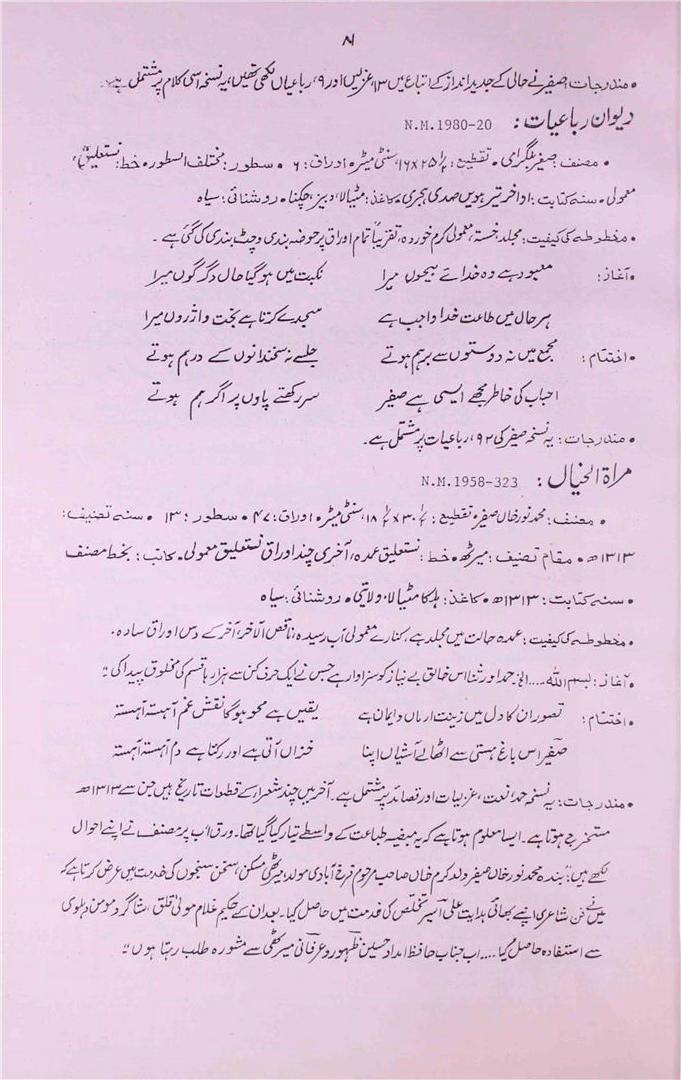 ۸۱
• مندرجات: صفیر نے حالی کے جدید انداز کے اتباع میں ۱۳، غزلیں اور ۹، رباعیاں لکھی تھیں، یہ نسخہ اسی کلام پر مشتمل ہے۔
دیوان رباعیات: N.M.1980-20
• مصنف: صفیر بلگرامی • تقطیع: ۲۵ ۱/۲ × ۱۶، سنٹی میٹر • اوراق: ۶ • سطور: مختلف السطور • خط: نستعلیق،
معمولی • سنہ کتابت: اواخر تیرہویں صدی ہجری • کاغذ: مٹیالا، دبیز، چکنا • روشنائی: سیاہ
• مخطوطہ کی کیفیت: مجلد، خستہ، معمولی کرم خوردہ، تقریباً تمام اوراق پر حوضہ بندی و چٹ بندی کی گئی ہے۔
• آغاز: معبود ہے وہ خدائے بیچوں میرا نکبت میں ہو گیا حال دگرگوں میرا
ہر حال میں طاعت خدا واجب ہے سجدے کرتا ہے بخت واژوں میرا
• اختتام: مجمع میں نہ دوستوں سے برہم ہوتے جلسے نہ سخندانوں کے درہم ہوتے
احباب کی خاطر مجھے ایسی ہے صفیر سر رکھتے پاوں پر اگر ہم ہوتے
• مندرجات: یہ نسخہ صفیر کی ۹۲، رباعیات پر مشتمل ہے۔
مراۃ الخیال: N.M.1958-323
• مصنف: محمد نور خاں صفیر • تقطیع: ۳۰ ۱/۲ × ۱۸ ۱/۲، سنٹی میٹر • اوراق: ۴۷ • سطور: ۱۳ • سنہ تصنیف:
۱۳۱۳ھ • مقام تصنیف: میرٹھ • خط: نستعلیق عمدہ، آخری چند اوراق نستعلیق معمولی • کاتب: بخط مصنف
• سنہ کتابت: ۱۳۱۳ھ • کاغذ: ہلکا مٹیالا، ولایتی • روشنائی: سیاہ
• مخطوطہ کی کیفیت: عمدہ حالت میں مجلد ہے، کنارے معمولی آب رسیدہ، ناقص الآخر، آخر کے دس اوراق سادہ۔
• آغاز: بسم اللہ.... الخ: حمد اور ثنا اس خالق بے نیاز کو سزاوار ہے جس نے ایک حرف کن سے ہزارہا قسم کی مخلوق پیدا کی"
• اختتام: تصور ان کا دل میں زینت ارماں و ایمان ہے یقیں ہے محو ہو گا نقش غم آہستہ آہستہ
صفیر اس باغ ہستی سے اٹھا لے آشیاں اپنا خزاں آتی ہے اور رکتا ہے دم آہستہ آہستہ
• مندرجات: یہ نسخہ حمد، نعت، غزلیات اور قصائد پر مشتمل ہے۔ آخر میں چند شعراء کے قطعات تاریخ ہیں جن سے ۱۳۱۳ھ
مستخرج ہوتا ہے۔ ایسا معلوم ہوتا ہے کہ یہ مبیضہ طباعت کے واسطے تیار کیا گیا تھا۔ ورق ۱ب پر مصنف نے اپنے احوال
لکھے ہیں: "بندہ محمد نور خاں صفیر ولد کرم خاں صاحب مرحوم فرخ آبادی مولد، میرٹھی مسکن، سخن سنجوں کی خدمت میں عرض کرتا ہے کہ
میں نے فن شاعری اپنے بھائی ہدایت علی اسیر تخلص کی خدمت میں حاصل کیا۔ بعد ان کے حکیم غلام مولیٰ قلق، شاگرد مومن دہلوی
سے استفادہ حاصل کیا.... اب جناب حافظ امداد حسین ظہور و عرفانی میرٹھی سے مشورہ طلب رہتا ہوں"